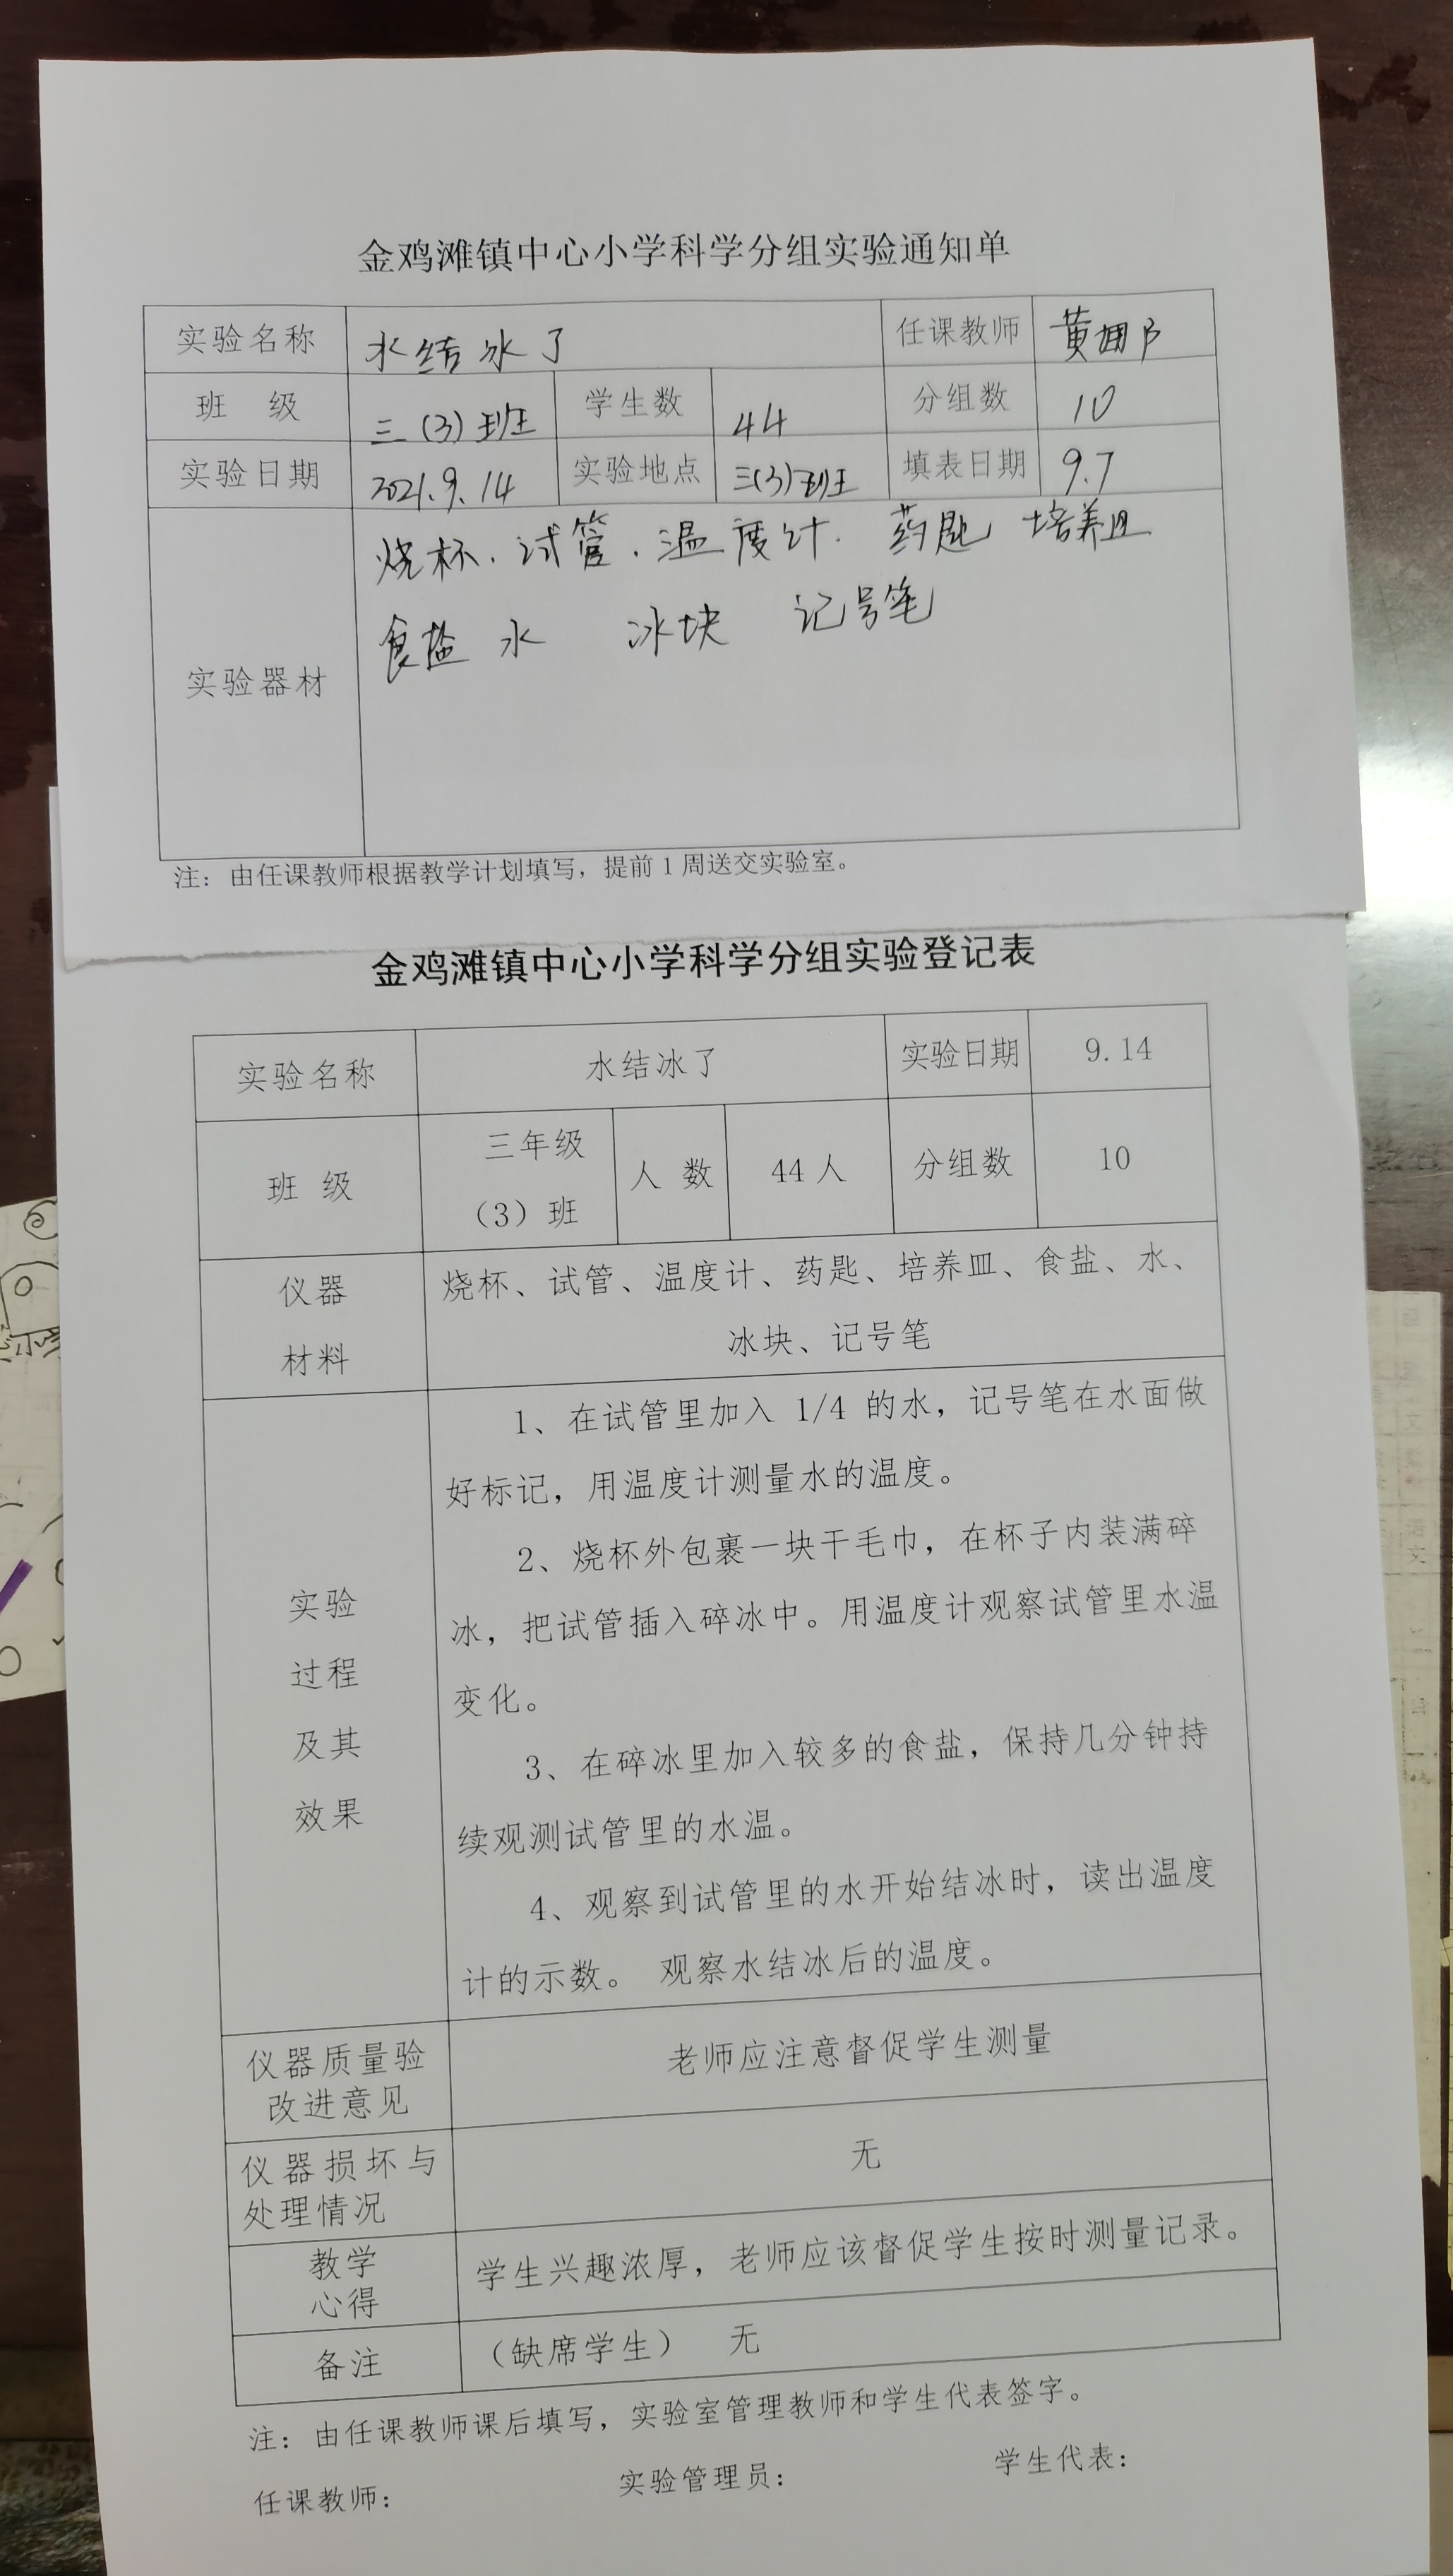 金鸡滩镇中心小学科学分组实验通知单
实验名称 水结冰了 任课教师 黄
班 级 三(3)班 学生数 44 分组数 10
实验日期 2021.9.14 实验地点 三(3)班 填表日期 9.7
烧杯.试管.温度计. 药匙 培养皿
食盐 水 冰块 记号笔
实验器材
注：由任课教师根据教学计划填写，提前1周送交实验室。
金鸡滩镇中心小学科学分组实验登记表
实验名称 水结冰了 实验日期 9.14
三年级
班 级 人 数 44人 分组数 10
（3）班
仪器 烧杯、试管、温度计、药匙、培养皿、食盐、水、
材料 冰块、记号笔
1、在试管里加入 1/4 的水，记号笔在水面做
好标记，用温度计测量水的温度。
2、烧杯外包裹一块干毛巾，在杯子内装满碎
实验
冰，把试管插入碎冰中。用温度计观察试管里水温
过程
变化。
及其
3、在碎冰里加入较多的食盐，保持几分钟持
效果
续观测试管里的水温。
4、观察到试管里的水开始结冰时，读出温度
计的示数。 观察水结冰后的温度。
仪器质量验
改进意见
老师应注意督促学生测量
仪器损坏与
处理情况
无
教学
心得
学生兴趣浓厚，老师应该督促学生按时测量记录。
备注 （缺席学生） 无
注：由任课教师课后填写，实验室管理教师和学生代表签字。
任课教师： 实验管理员： 学生代表：